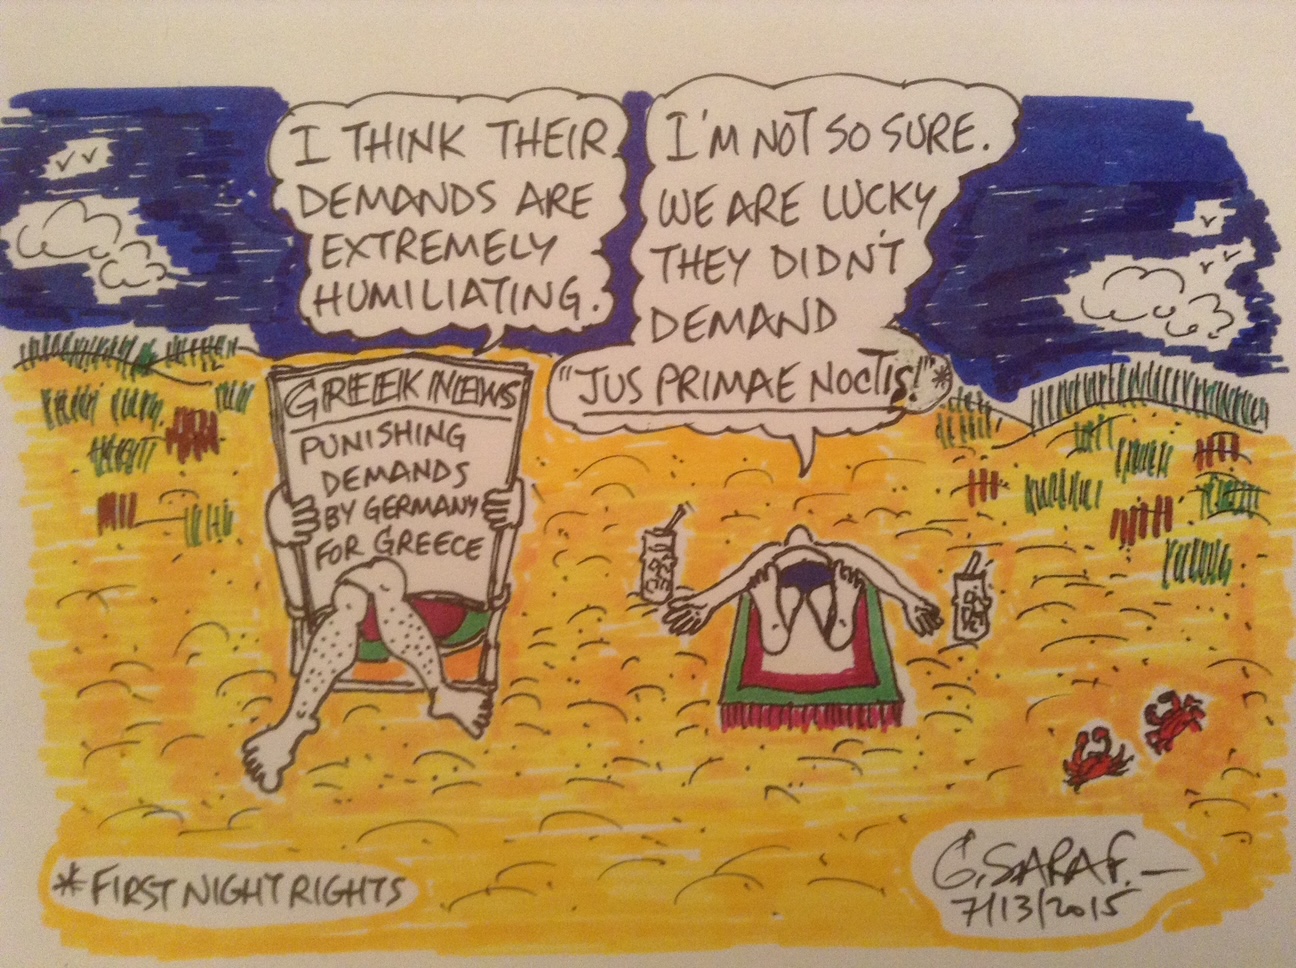 I THINK THEIR
DEMANDS ARE
EXTREMELY
HUMILIATING.
I'M NOT SO SURE.
WE ARE LUCKY
THEY DIDN'T
DEMAND
"JUS PRIMAE NOCTIS!"*
GREEK NEWS
PUNISHING
DEMANDS
BY GERMANY
FOR GREECE
*FIRST NIGHT RIGHTS
G. SARAF.
7/13/2015